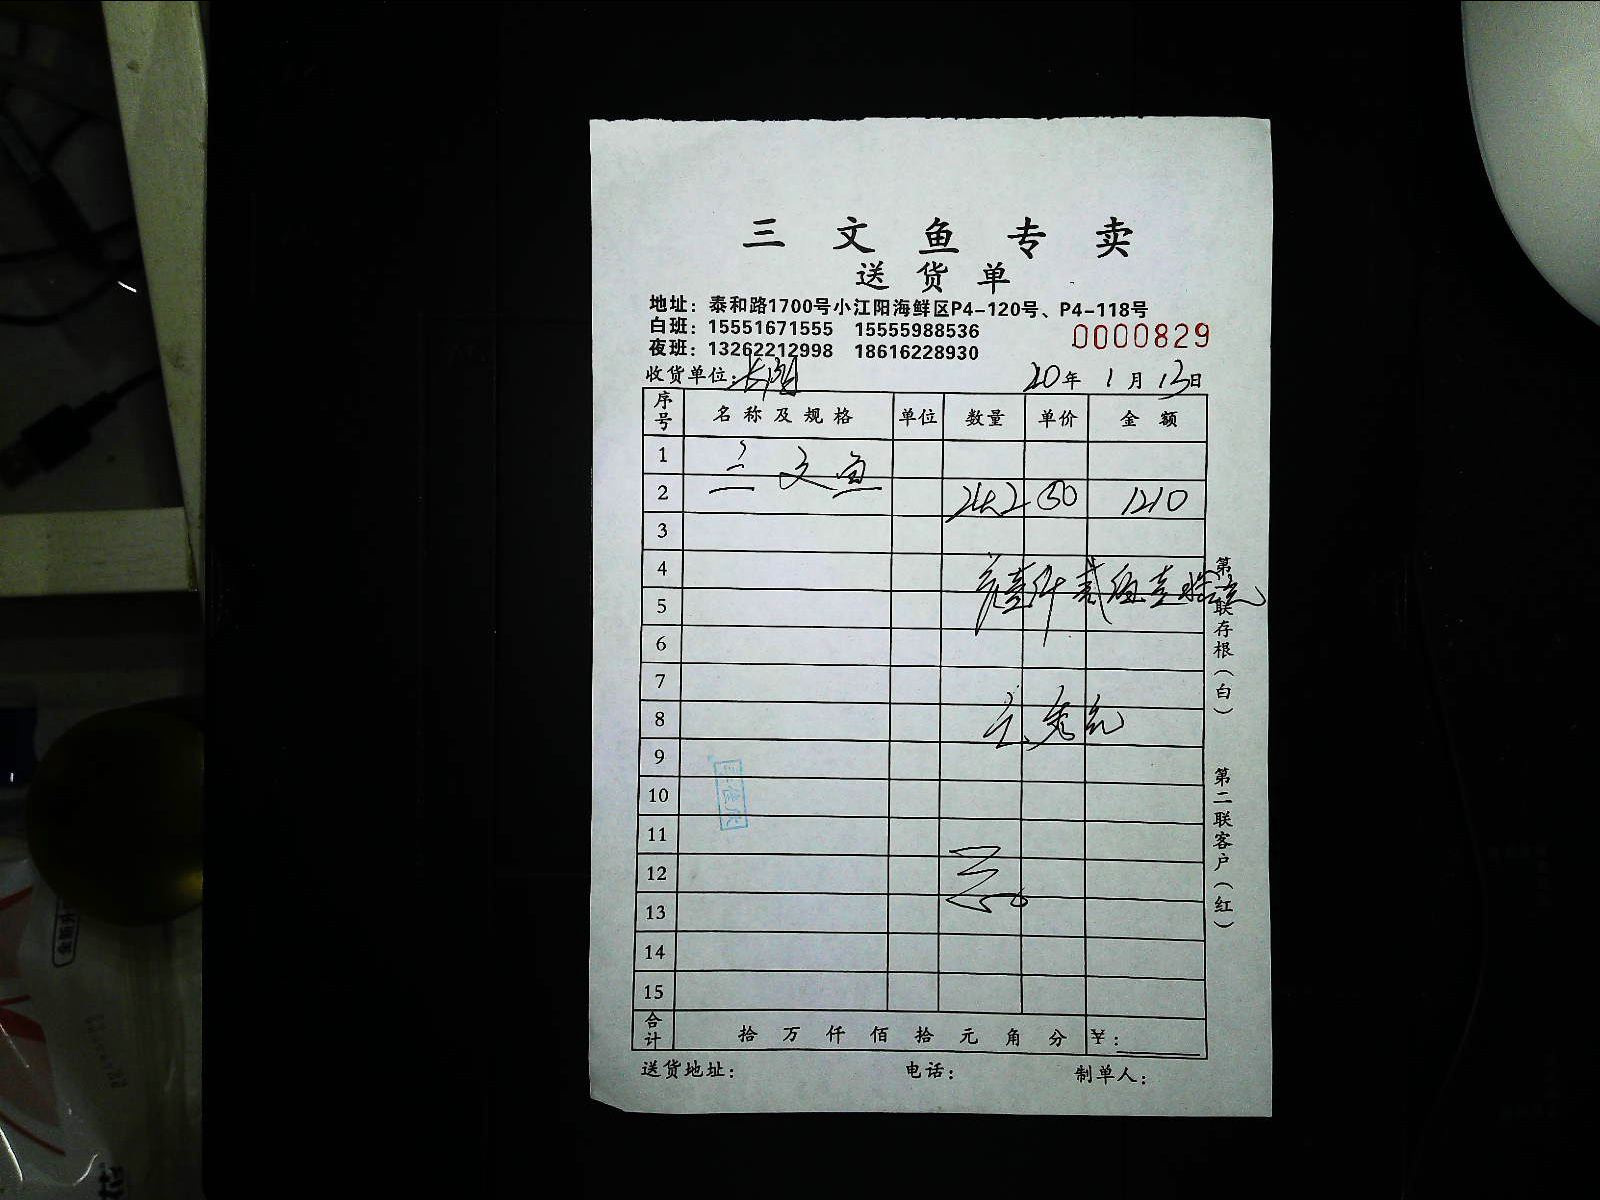 三文鱼专卖
送货单
地址：泰和路1700号小江阳海鲜区P4-120号、P4-118号
白班：15551671555 15555988536
0000829
夜班：13262212998 18616228930
收货单位：
20年 1月 13日
序号 名称及规格 单位 数量 单价 金额
1 三文鱼
2 50 1210
3
4
5
6
7
8
9
10
11
12
13
14
15
合计 拾 万 仟 佰 拾 元 角 分 ¥：
送货地址： 电话： 制单人：
第一联存根（白）
第二联客户（红）